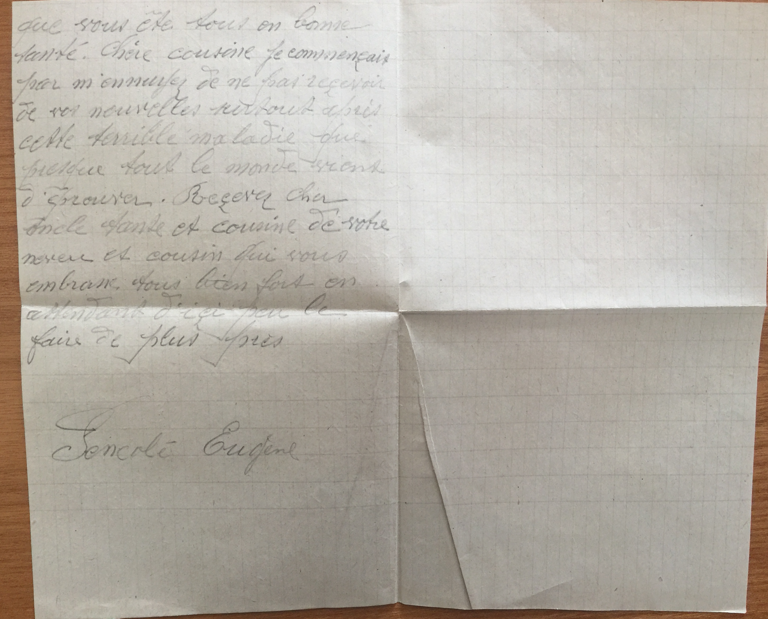 que vous ête tous en bonne
santé. Chère cousine je commençais
par m'ennuyez de ne pas reçevoir
de vos nouvelles surtout après
cette terrible maladie que
presque tout le monde vient
d'éprouver. Reçevez cher
oncle tante et cousine de votre
neveu et cousin qui vous
embrasse tous bien fort en
attendant d'içi peu le
faire de plus près
Eugène